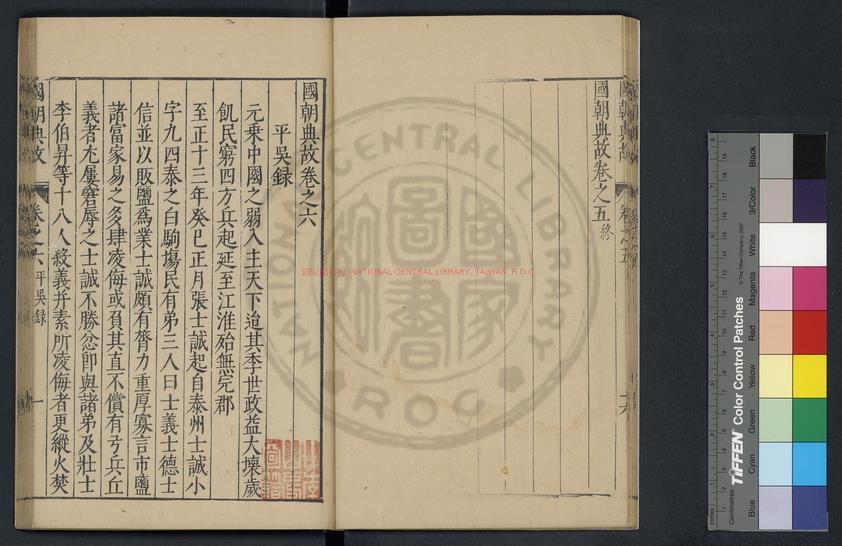 國朝典故卷之五終
國朝典故卷之六
平吳録
元乘中國之弱入主天下迨其季世政益大壞歲
飢民窮四方兵起延至江淮殆無完郡
至正十三年癸巳正月張士誠起自泰州士誠小
字九四泰之白駒場民有弟三人曰士義士德士
信並以販鹽爲業士誠頗有膂力重厚寡言市鹽
諸富家易之多肆凌侮或負其直不償有弓兵丘
義者尤屢窘辱之士誠不勝忿即與諸弟及壯士
李伯昇等十八人殺義并素所凌侮者更縱火焚
國朝典故 卷之六 平吳録 一
NATIONAL CENTRAL LIBRARY, TAIWAN, R.O.C.
國家圖書館
NATIONAL CENTRAL LIBRARY
ROC
Centimetres
TIFFEN Color Control Patches
© The Tiffen Company, 2007
Blue
Cyan
Green
Yellow
Red
Magenta
White
3/Color
Black